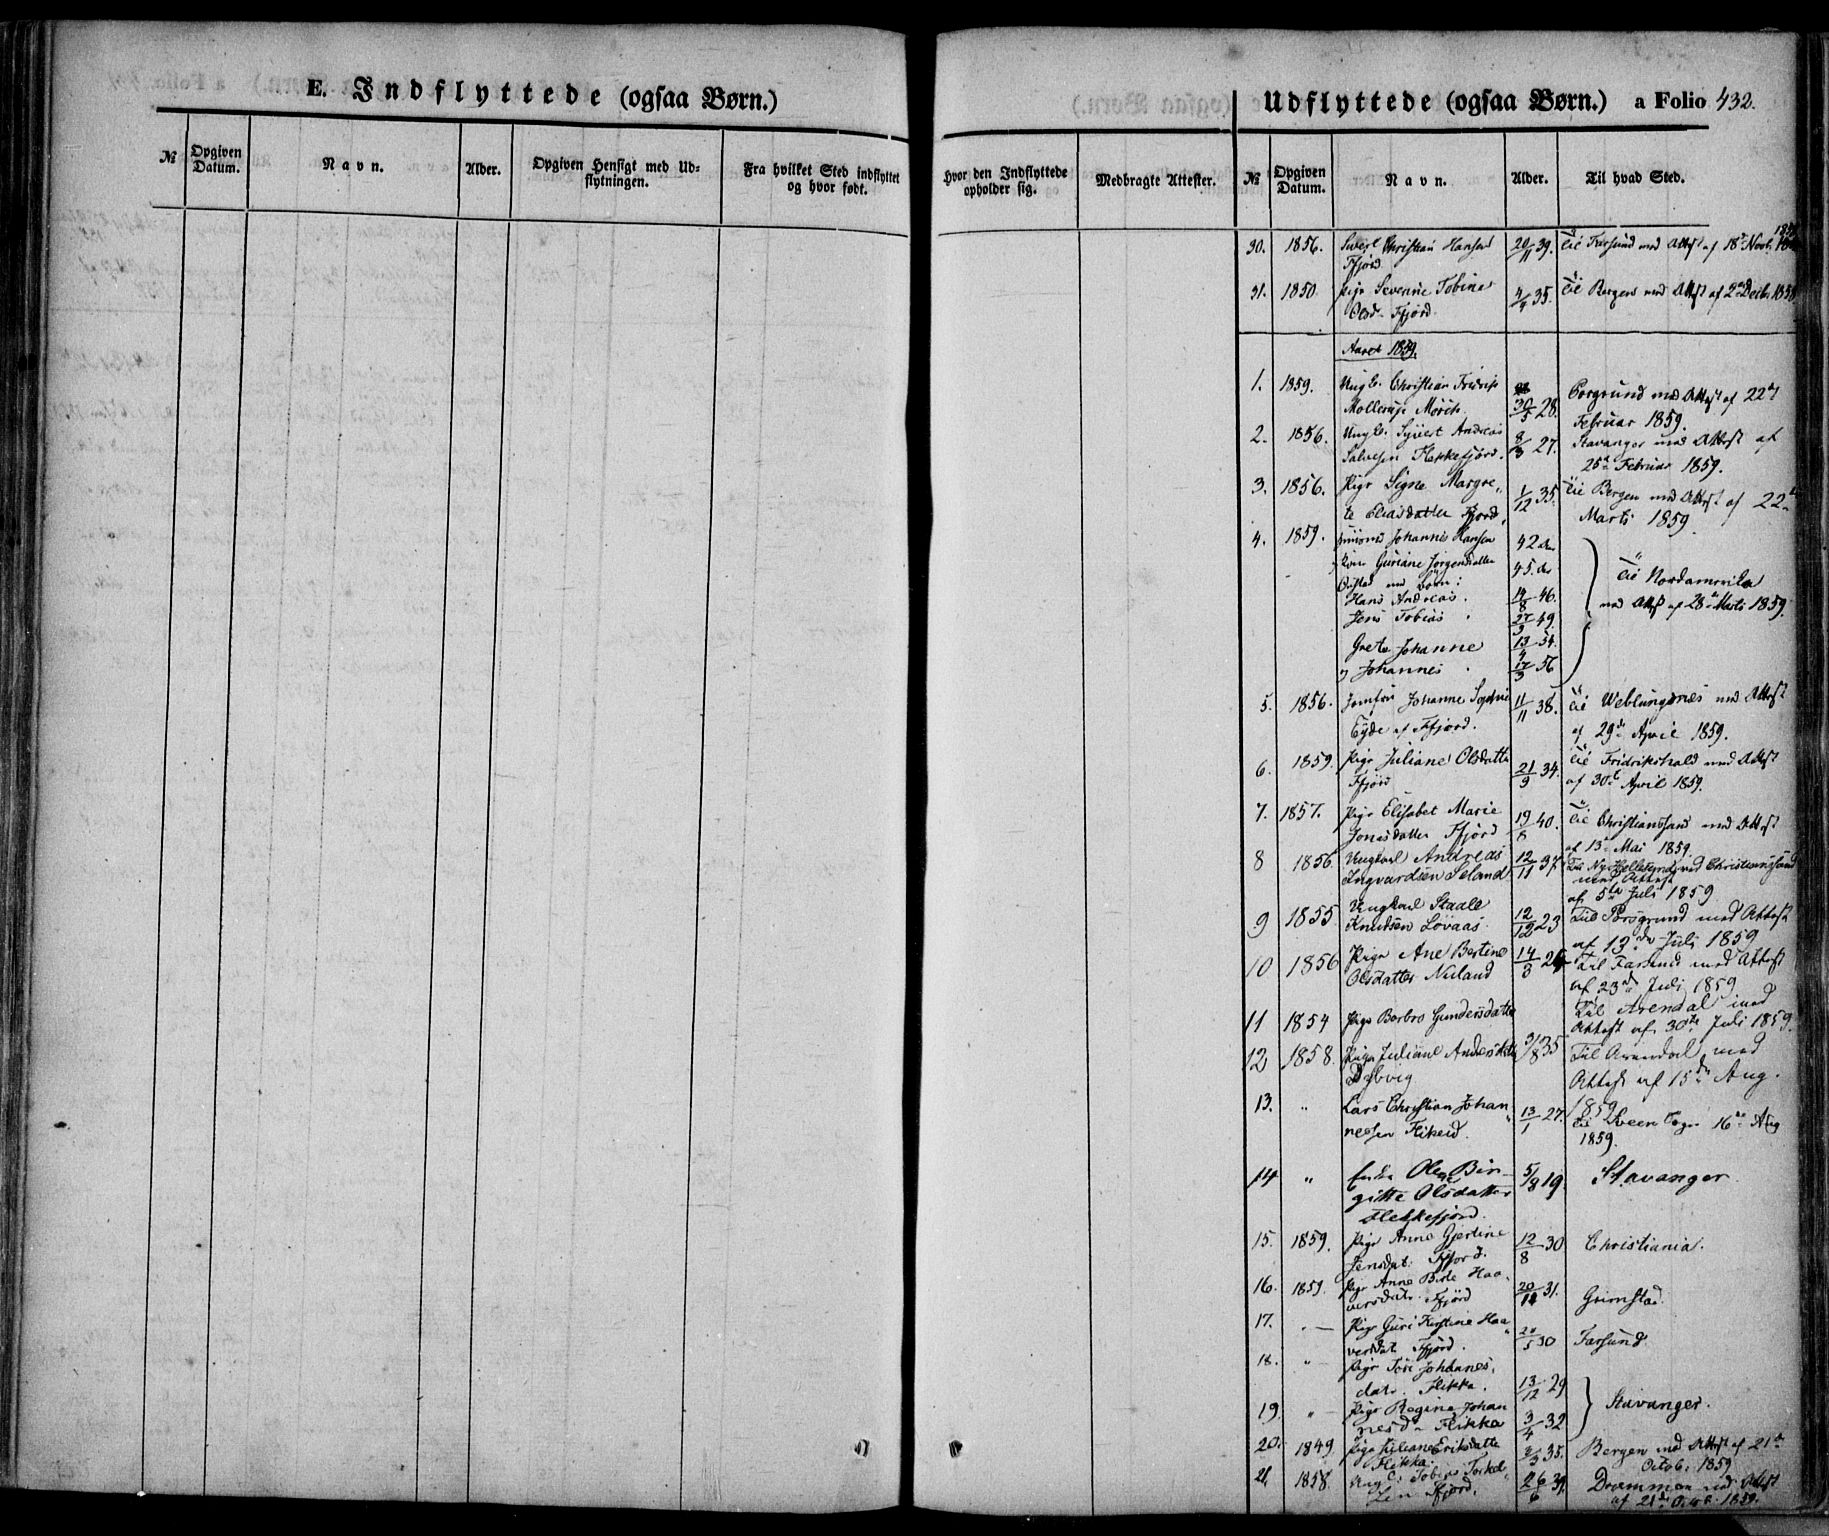 E. Indflyttede (ogsaa Børn.)
№ Opgiven Datum. Navn. Alder. Opgiven Hensigt med Udflytningen. Fra hvilket Sted indflyttet og hvor født.
Hvor den Indflyttede opholder sig. Medbragte Attester.
Udflyttede (ogsaa Børn.) a Folio 432.
№ Opgiven Datum. Navn. Alder. Til hvad Sted.
30. 1856. Christian Hansen 20/11 39. Til Farsund med Attest af 18de Novb.
Ffjord
31. 1850. Pige Severine Tobine 4/9 35. Til Bergen med Attest af 2den Decbr 1858
Olsd. Ffjord
Aaret 1859.
1. 1859. Ungk. Christian Fridrik 30/5 28. Porsgrund med Attest af 22d
Mollerup Mørch. Februar 1859.
2. 1856. Ungk. Syvert Andreas 8/3 27. Stavanger med Attest af
Salvesen Flekkefjord. 25de Februar 1859.
3. 1856. Pige Signe Margre„ 1/12 35. Til Bergen med Attest af 22d
te Eliasdatter Ffjord. Marts 1859.
4. 1859. Johannes Hansen 42 Aar
Kone Guriane Jørgensdatter 45. Aar
med Børn: Til Nordamerika
Hans Andreas. 14/8 46. med Attest af 28de Marts 1859.
Jens Tobias. 27/3 49.
Grete Johanne 13/4 54.
og Johannes. 17/3 56
5. 1856. Jomfru Johanne Sophie 11/11 38. Til Weblungsnes med Attest
Eyde af Ffjord. af 29de April 1859.
6. 1859. Pige Juliane Olsdatter 21/3 34. Til Fridrikshald med Attest
Ffjord af 30te April 1859.
7. 1857. Pige Elisabet Marie 19/8 40. Til Christianssand med Attest
Jonasdatter Ffjord af 13de Mai 1859.
8 1856 Ungkarl Andreas 12/11 37 Til Ny Hellesund ved Christianssand
Ingvardsen Seland med Attest
af 5te Juli 1859
9 1855 Ungkarl Staale 12/12 23 Til Porsgrund med Attest
Knutsen Løvaas. af 13de Juli 1859
10 1856 Pige Ane Bertine 14/3 Til Farsund med Attest
Olsdatter Nuland af 23de Juli 1859
11 1854 Pige Barbro Gundersdatter Til Arendal med
Attest af 30te Juli 1859.
12 1858. Pige Juliane Andersdtr 31/8 35 Til Arendal med
Dybvig Attest af 15de Aug.
1859
13. „ Lars Christian Johan„ 13/1 27. Til Sogn 16de Aug
nesen Flikeid. 1859.
14 „ Enke Olene Bir- 5/8 19. Stavanger.
gitte Olsdatter
Flekkefjord.
15. 1859. Pige Anne Gjertine 12/8 30 Christiania.
Jensdat. Ffjord.
16. 1859. Pige Anne Birte Haa„ 20/11 31. Grimstad.
versdat. Ffjord
17. „ — Pige Guri Kirstine Haa„ 20/5 30 Farsund.
versdat. Ffjord.
18. „ Pige Tori Johannes„ 13/12 29
dat. Flikka. Stavanger.
19. „ Pige Regine Johan 3/4 32
nesd. Flikka
20. 1849 Pige Juliane Eriksdatter 2/3 35. Bergen med Attest af 21de
Flikka. Octob. 1859
21. 1858. Ungk. Tobias Torkel„ 26/6 39. Drammen med Attest
sen Ffjord. af 21de Octb. 1859.